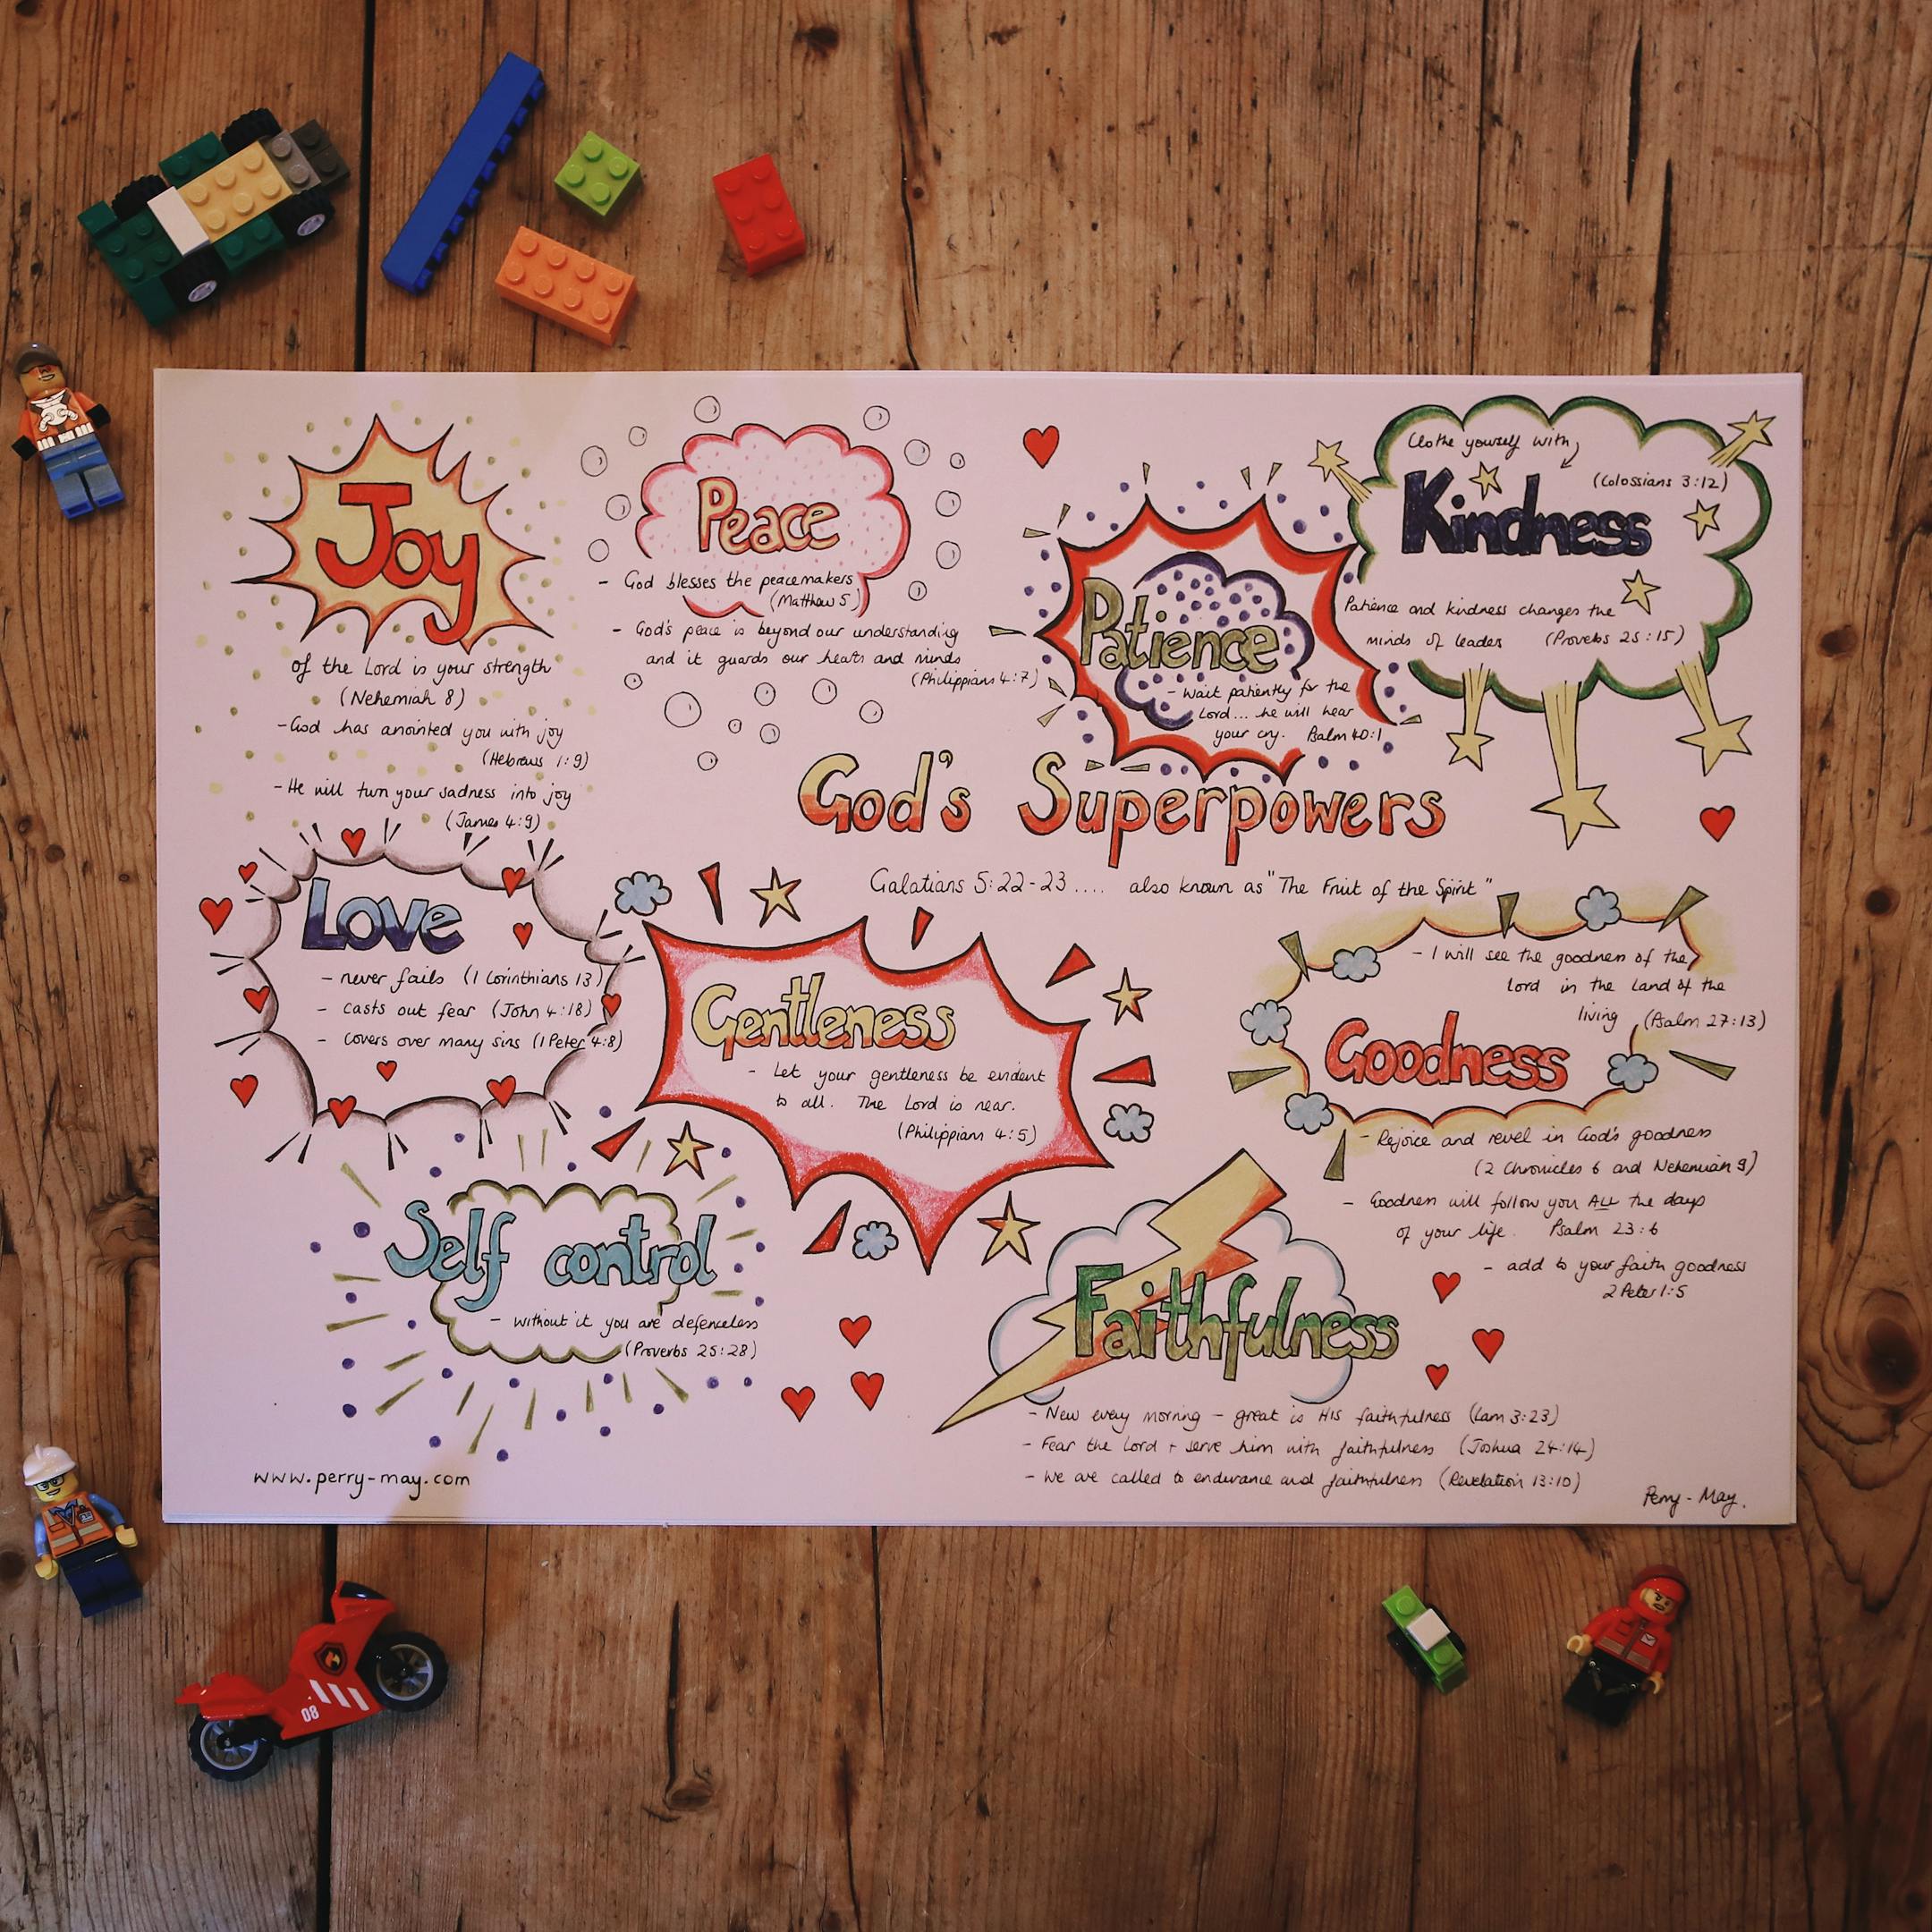 Joy
of the Lord is your strength
(Nehemiah 8)
- God has anointed you with joy
(Hebrews 1:9)
- He will turn your sadness into joy
(James 4:9)
Peace
- God blesses the peacemakers
(Matthew 5)
- God's peace is beyond our understanding
and it guards our hearts and minds
(Philippians 4:7)
Patience
- Wait patiently for the
Lord... he will hear
your cry. Psalm 40:1
Clothe yourself with
Kindness
(Colossians 3:12)
Patience and kindness changes the
minds of leaders (Proverbs 25:15)
God's Superpowers
Galatians 5:22-23.... also known as "The Fruit of the Spirit"
Love
- never fails (1 Corinthians 13)
- casts out fear (John 4:18)
- covers over many sins (1 Peter 4:8)
Gentleness
- Let your gentleness be evident
to all. The Lord is near.
(Philippians 4:5)
- I will see the goodness of the
Lord in the land of the
living (Psalm 27:13)
Goodness
- Rejoice and revel in God's goodness
(2 Chronicles 6 and Nehemiah 9)
- Goodness will follow you ALL the days
of your life. Psalm 23:6
- add to your faith goodness
2 Peter 1:5
Self control
- without it you are defenceless
(Proverbs 25:28)
Faithfulness
- New every morning - great is HIS faithfulness (Lam 3:23)
- Fear the Lord + serve him with faithfulness (Joshua 24:14)
- We are called to endurance and faithfulness (Revelation 13:10)
www.perry-may.com
Perry-May.
08